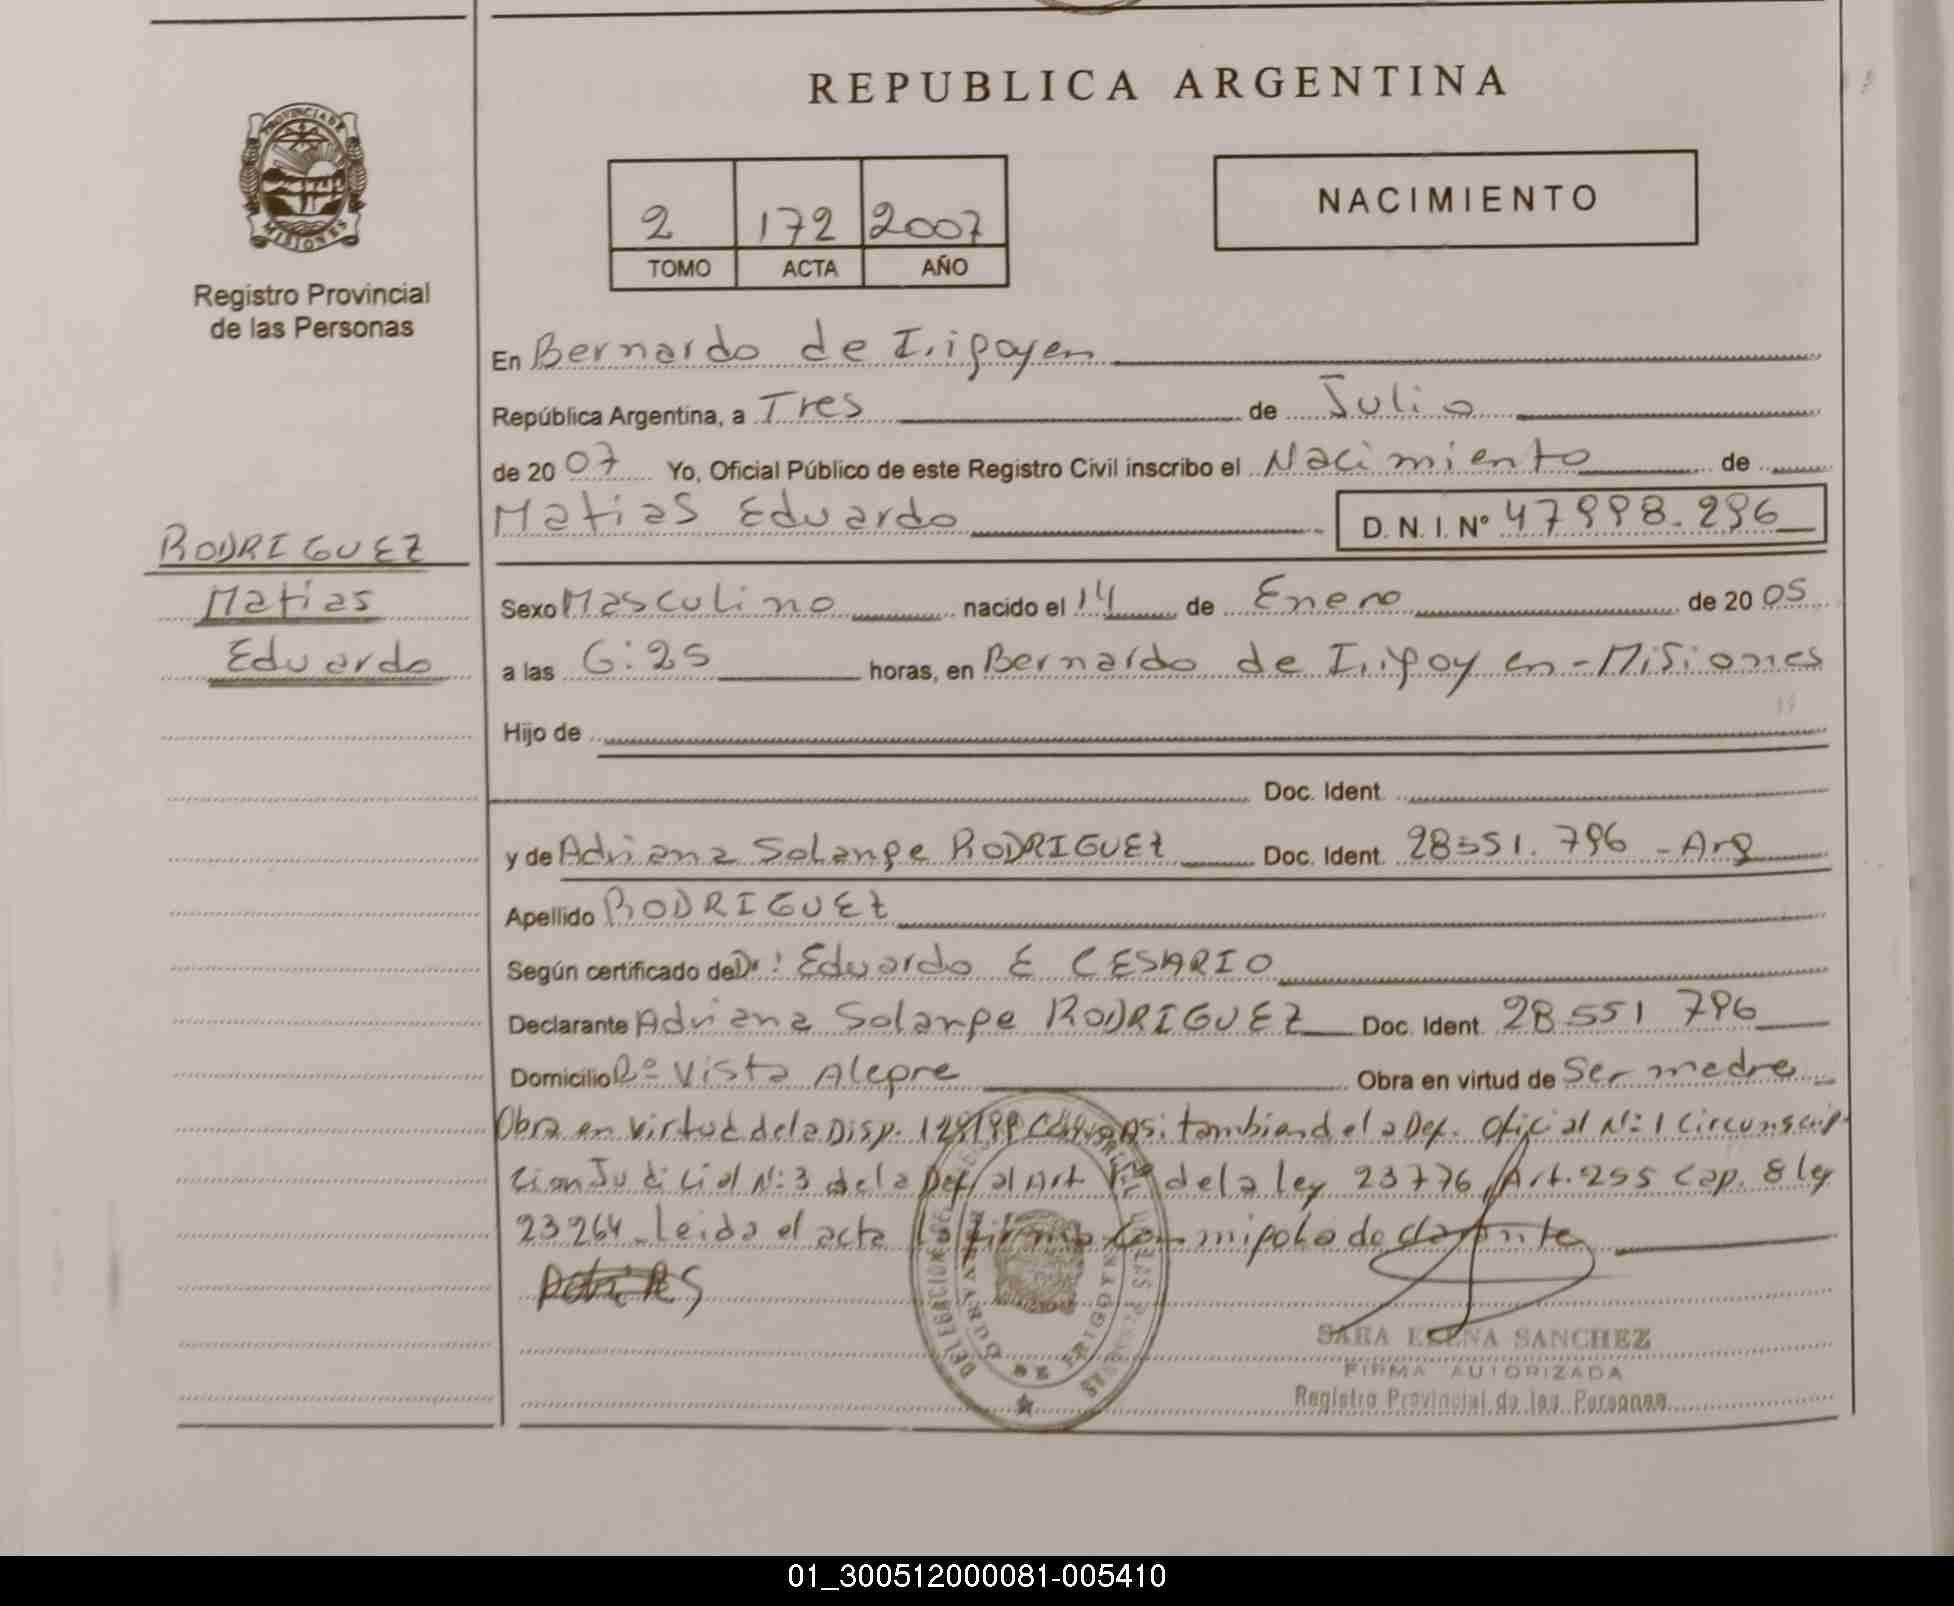 REPUBLICA ARGENTINA
PROVINCIA DE
MISIONES
Registro Provincial
de las Personas
2 172 2007
TOMO ACTA AÑO
NACIMIENTO
En Bernardo de Irigoyen
República Argentina, a Tres de Julio
de 2007 Yo, Oficial Público de este Registro Civil inscribo el Nacimiento de
Matias Eduardo D. N. I. N° 47998.296
RODRIGUEZ
Matias
Eduardo
Sexo Masculino nacido el 14 de Enero de 2005
a las 6:25 horas, en Bernardo de Irigoyen - Misiones
Hijo de
Doc. Ident.
y de Adriana Solange RODRIGUEZ Doc. Ident. 28551.796 - Arg
Apellido RODRIGUEZ
Según certificado de Dr: Eduardo E CESARIO
Declarante Adriana Solange RODRIGUEZ Doc. Ident. 28.551 796
Domicilio Bº Vista Alegre Obra en virtud de Ser madre
Obra en virtud de la Disp. Asi tambien de la Def. Oficial N:1 Circunscrip-
cion Judicial N:3 de la Def al Art de la ley 23776, Art. 255 Cap. 8 ley
23264. Leida el acta la firma con migo la declarante
SARA ELENA SANCHEZ
FIRMA AUTORIZADA
Registro Provincial de las Personas
01_300512000081-005410